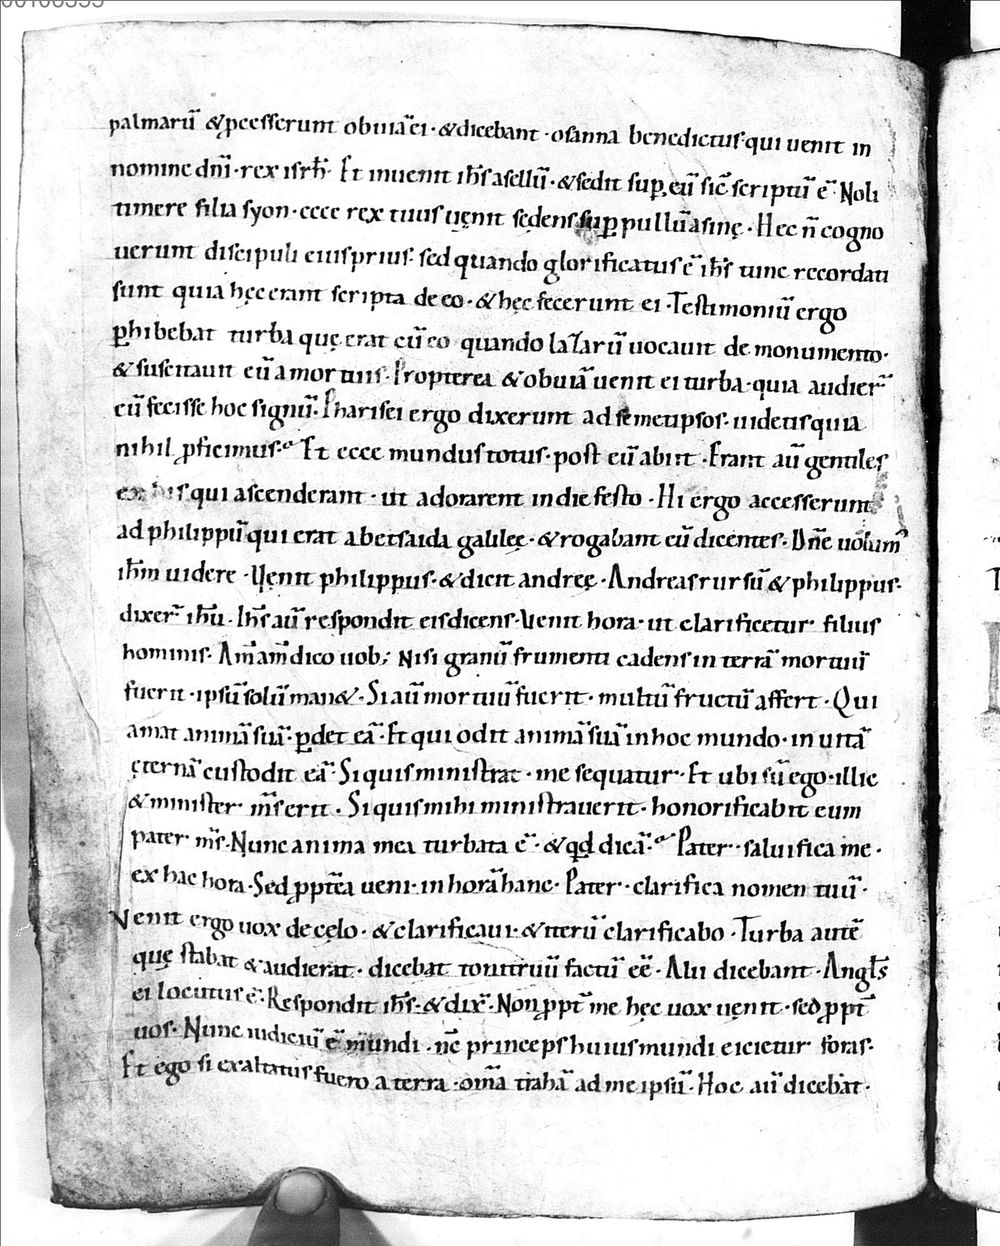 palmarū &p̄cesserunt obuiā ei · &dicebant · osanna benedictus · qui uenit in
nomine dn̄i · rex isrh̄l · Et inuenit ih̄s asellū · &sedit sup̱ eū sic̄ scriptū ē · Noli
timere filia syon · ecce rex tuus uęnit sędens sup̱ pullū asinę · Hec n̄ cogno
uerunt discipuli eius prius · sed quando glorificatus ē ih̄s tunc recordati
sunt quia hęc erant scripta de eo · &hęc fecerunt ei · Testimoniū ergo
p̱hibebat turba quę erat cū eo quando lazarū uocauit de monumento ·
&suscitauit eū amortuis · Propterea &obuiā uenit ei turba · quia audier̄
eū fecisse hoc signū · Pharisei ergo dixerunt ad semetipsos · uidetis quia
nihil ꝓficimus · Et ecce mundus totus · post eū abiit · Erant aū gentiles
ex his qui ascenderant · ut adorarent indie festo · Hi ergo accesserunt
ad philippū qui erat abetsaida galilęę · &rogabant eū dicentes · Dn̄e uolum᷒
ih̄m uidere · Uęnit philippus · &dicit andręę · Andreas rursū & philippus ·
dixer̄ ih̄u · Ih̄s aū respondit eis dicens · Uenit hora · ut clarificetur filius
hominis · Am̄ am̄ dico uob; Nisi granū frumenti cadens in terrā mortuū
fuerit · ipsū solū man& · Si aū mortuū fuerit · multū fructū affert · Qui
amat animā suā · p̱det eā · Et qui odit animā suā in hoc mundo · in uitā
ęternā custodit eā · Si quis ministrat · me sequatur · Et ubi sū ego · illic
&minister m̄s erit · Si quis mihi ministrauerit · honorificabit eum
pater m̄s · Nunc anima mea turbata ē · &qd̄ dicā · Pater · saluifica me ·
ex hac hora · Sed ꝓpt̄ea ueni · in horā hanc · Pater · clarifica nomen tuū ·
Venit ergo uox de cęlo · &clarificaui · &iterū clarificabo · Turba autē
quę stabat &audierat · dicebat tonitruū factū eē · Alii dicebant · Angl̄s
ei locutus ē · Respondit ih̄s · &dix̄ · Non ꝓpt̄ me hęc uox uęnit · sed ꝓpt̄
uos · Nunc iudiciū ē mundi · nc̄ princeps huius mundi eicietur foras ·
Et ego si exaltatus fuero a terra · om̄a trahā ad me ipsū · Hoc aū dicebat ·